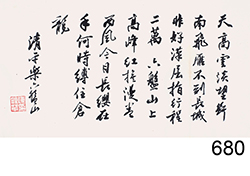 天高雲淡望斷
南飛雁不到長城
非好漢屈指行程
二萬 六盤山上
高峰紅旗漫卷
西風今日長纓在
手何時縛住蒼
龍
清平樂六盤山
680